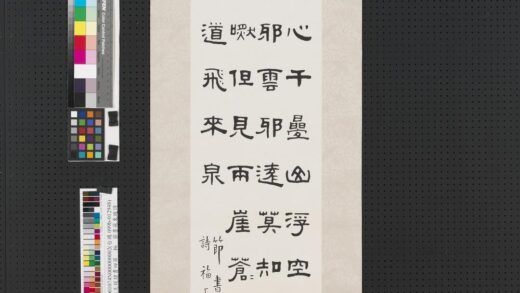 心千疊山浮空
邪雲邪遠莫知
但見兩崖蒼〻
道飛來泉
節書
詩福